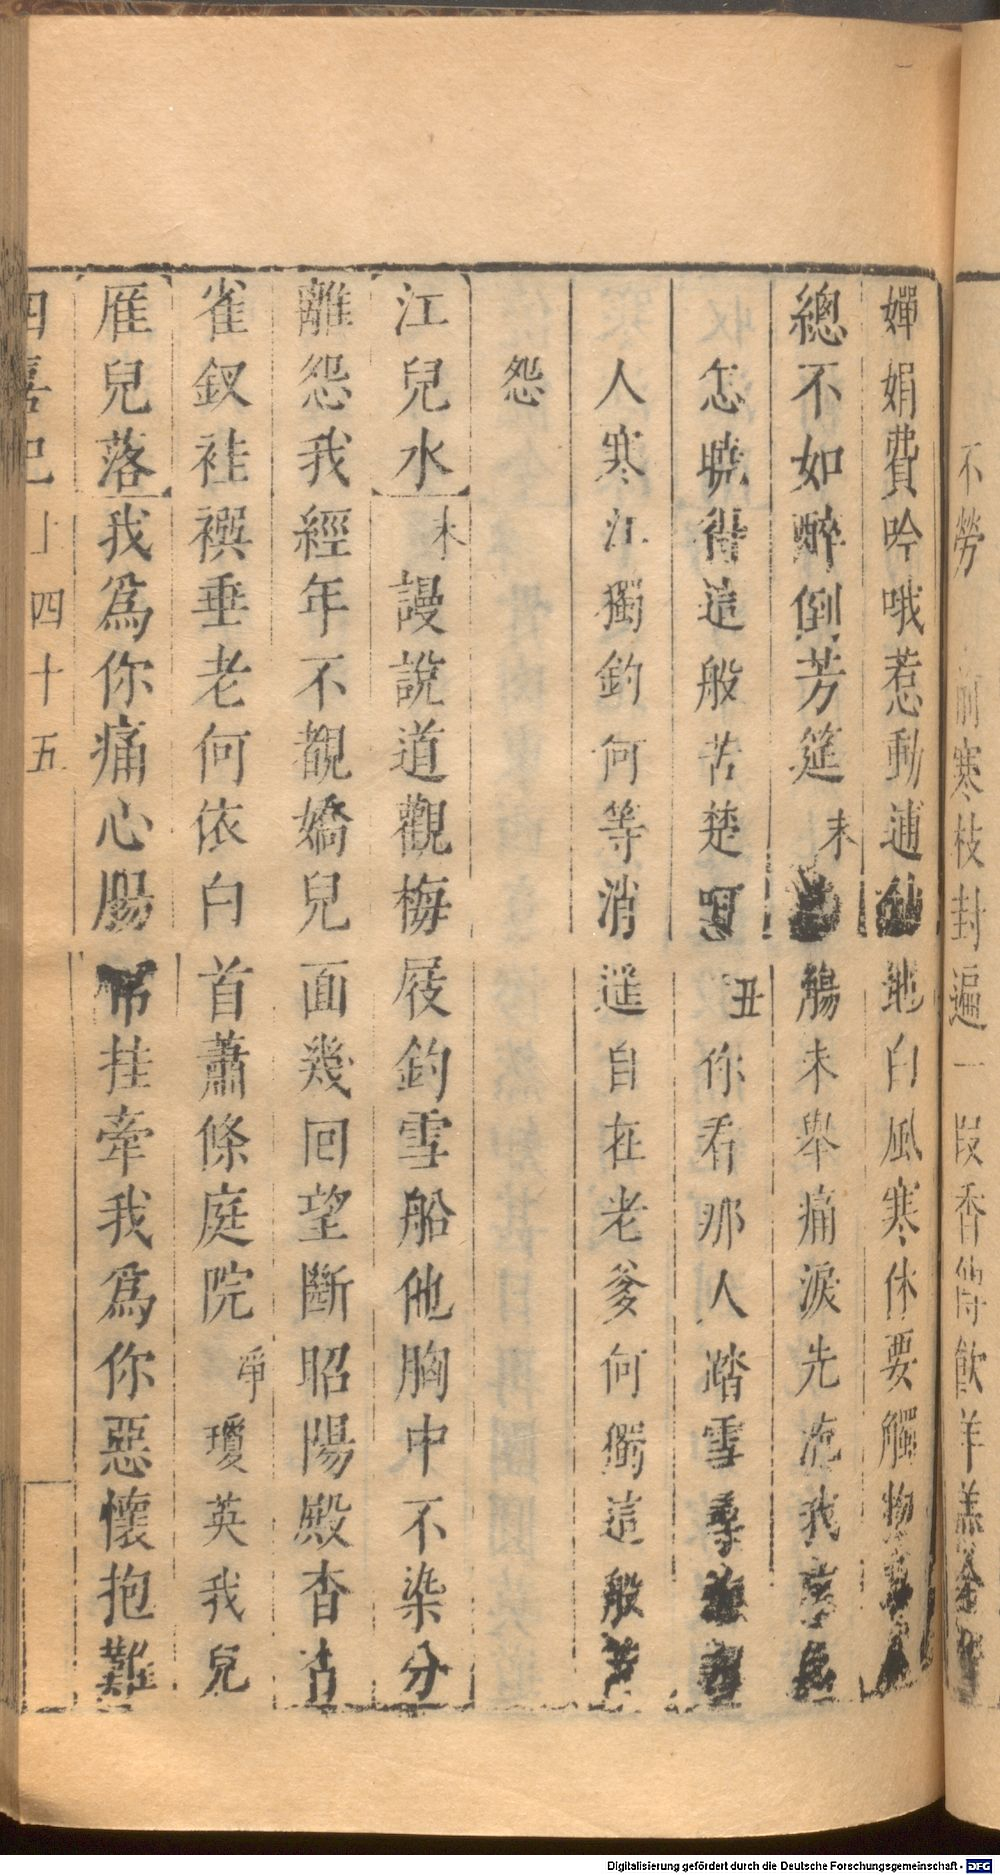 不勞 前寒枝封遍一 叚香傳飮羊羔
嬋娟費吟哦惹動逋仙 他白風寒休要觸物
總不如醉倒芳筵末 觴未舉痛淚先流我
怎曉得這般苦楚 丑你看那人踏雪尋
人寒江獨釣何等消 遥自在老爹何獨這般苦
怨
江兒水末謾說道觀梅 屐釣雪船他胸中不染分
離怨我經年不覩嬌兒 面幾回望斷昭陽殿杳古
雀釵袿襈垂老何依白 首蕭條庭院淨瓊英我兒
雁兒落我爲你痛心腸 吊挂牽我爲你惡懷抱難
四喜記 上 四十五
Digitalisierung gefördert durch die Deutsche Forschungsgemeinschaft - DFG